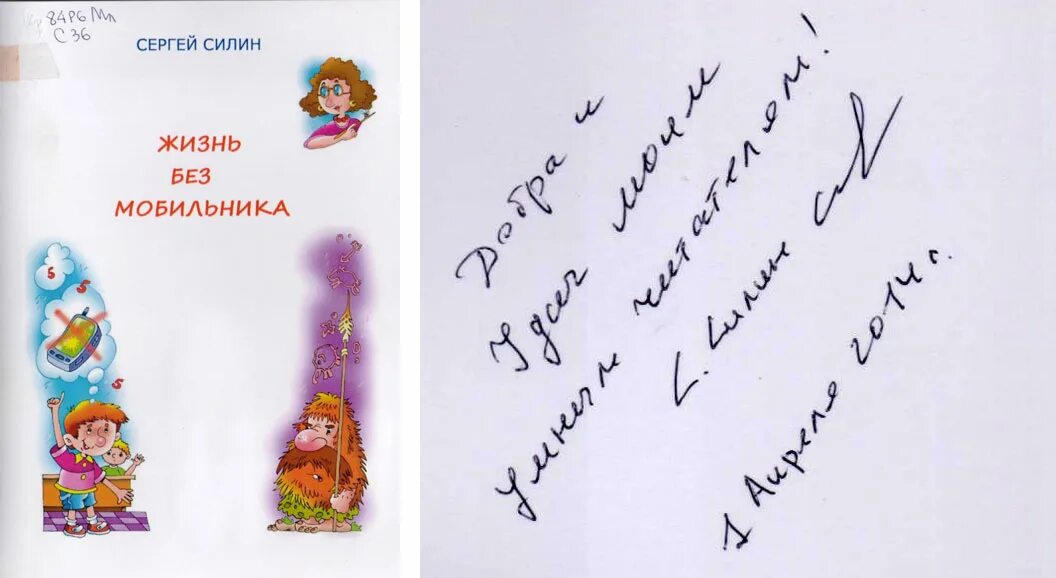 84Р6 Мл
С 36
СЕРГЕЙ СИЛИН
ЖИЗНЬ
БЕЗ
МОБИЛЬНИКА
5
5
5
Добра и
Удач моим
Умным читателям!
С. Силин
1 Апреля 2014 г.